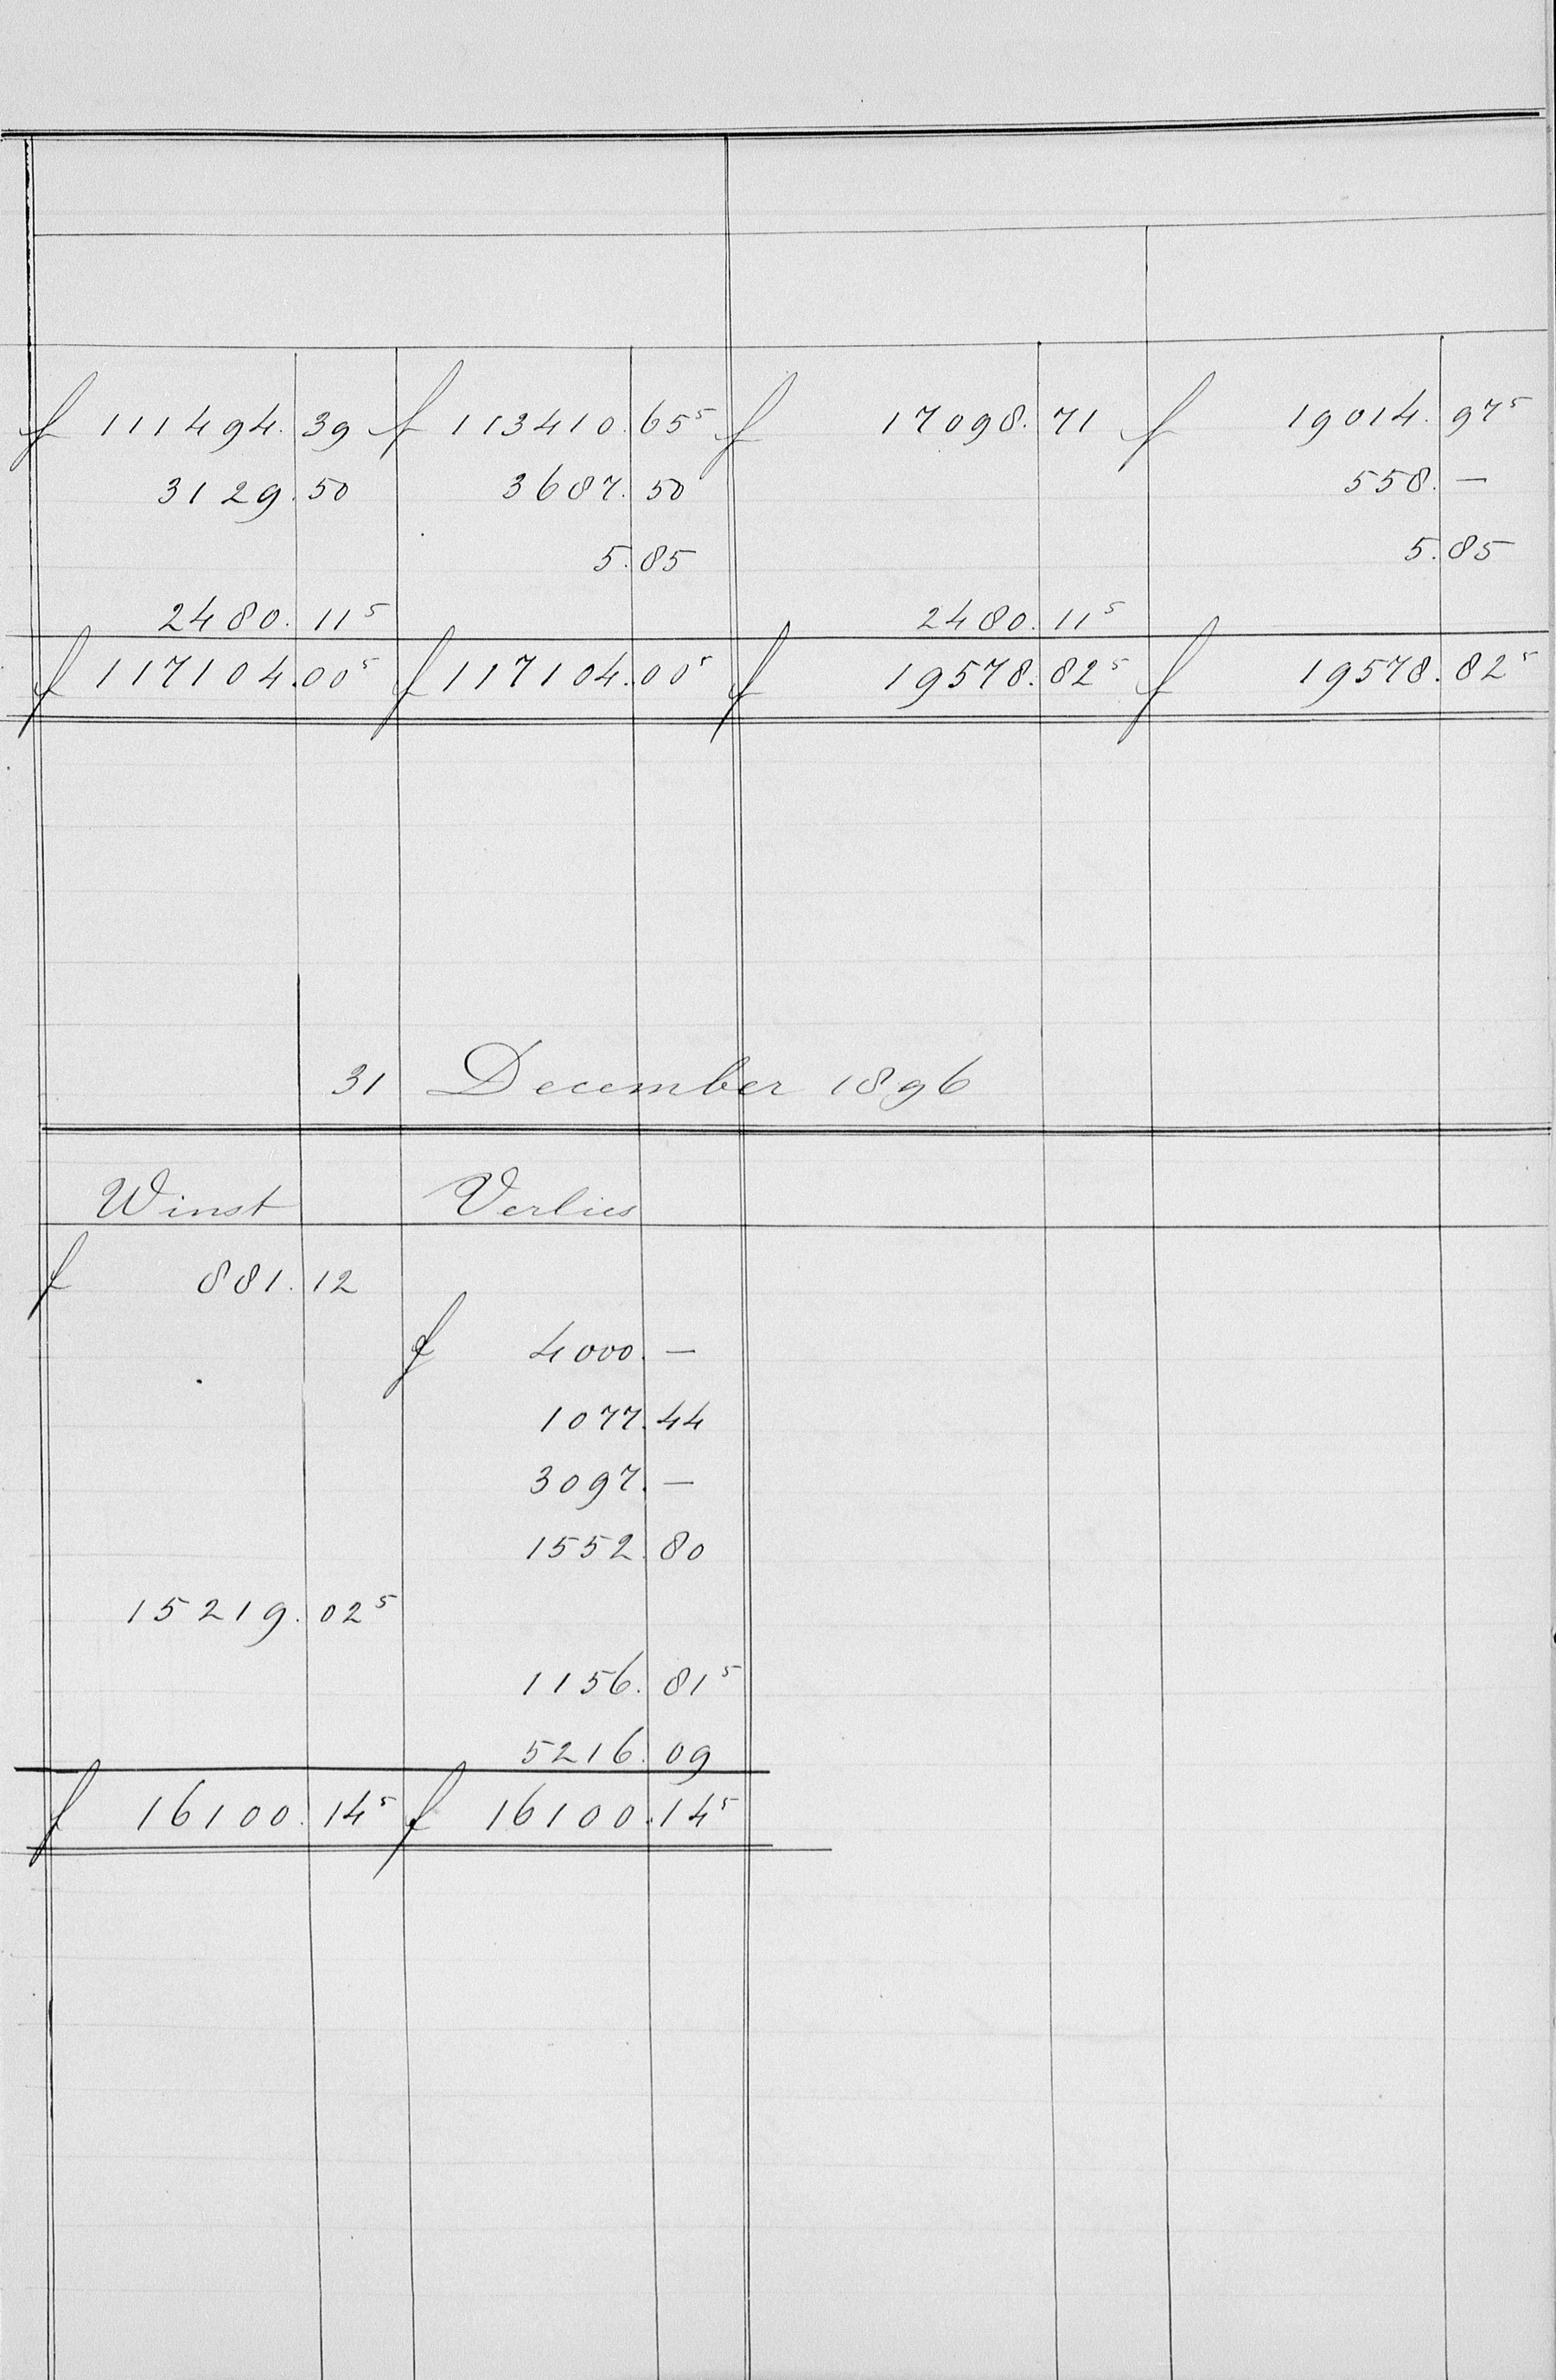 f 111494.39 f 113410.65⁵ f 17098.71 f 19014.97⁵
3129.50 3687.50 558.—
5.85 5.85
2480.11⁵ 2480.11⁵
f 117104.00⁵ f 117104.00⁵ f 19578.82⁵ f 19578.82⁵
31 December 1896
Winst Verlies
f 881.12
f 4000.—
1077.44
3097.—
1552.80
15219.02⁵
1156.81⁵
5216.09
f 16100.14⁵ f 16100.14⁵